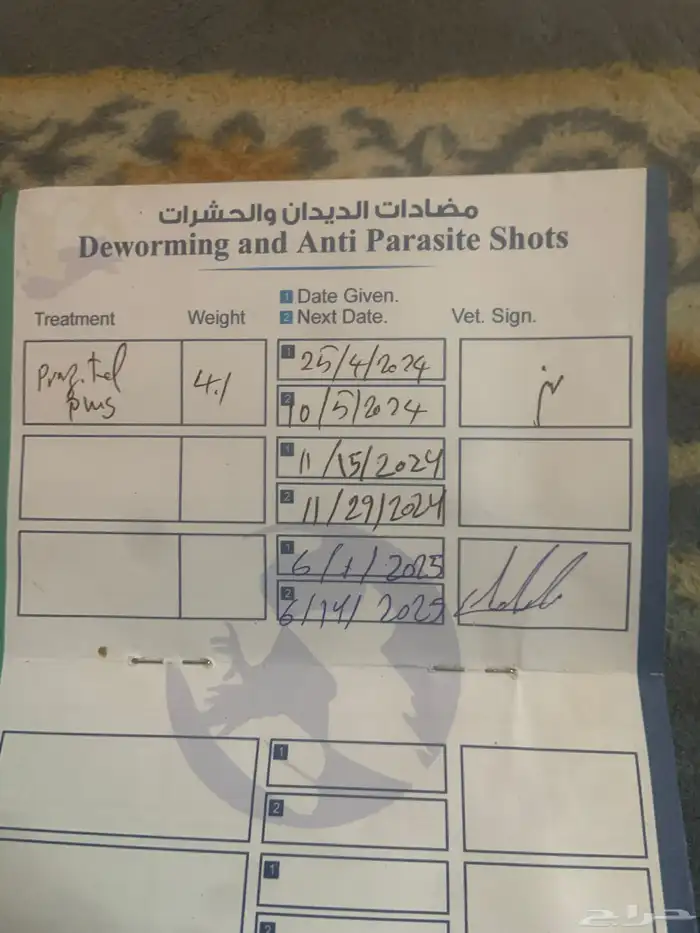 مضادات الديدان والحشرات
Deworming and Anti Parasite Shots
Treatment Weight 1 Date Given. 2 Next Date. Vet. Sign.
Prazitel plus 4.1
1 25/4/2024
2 10/5/2024
1 11/15/2024
2 11/29/2024
1 6/1/2025
2 6/14/2025
1
2
1
2
حراج